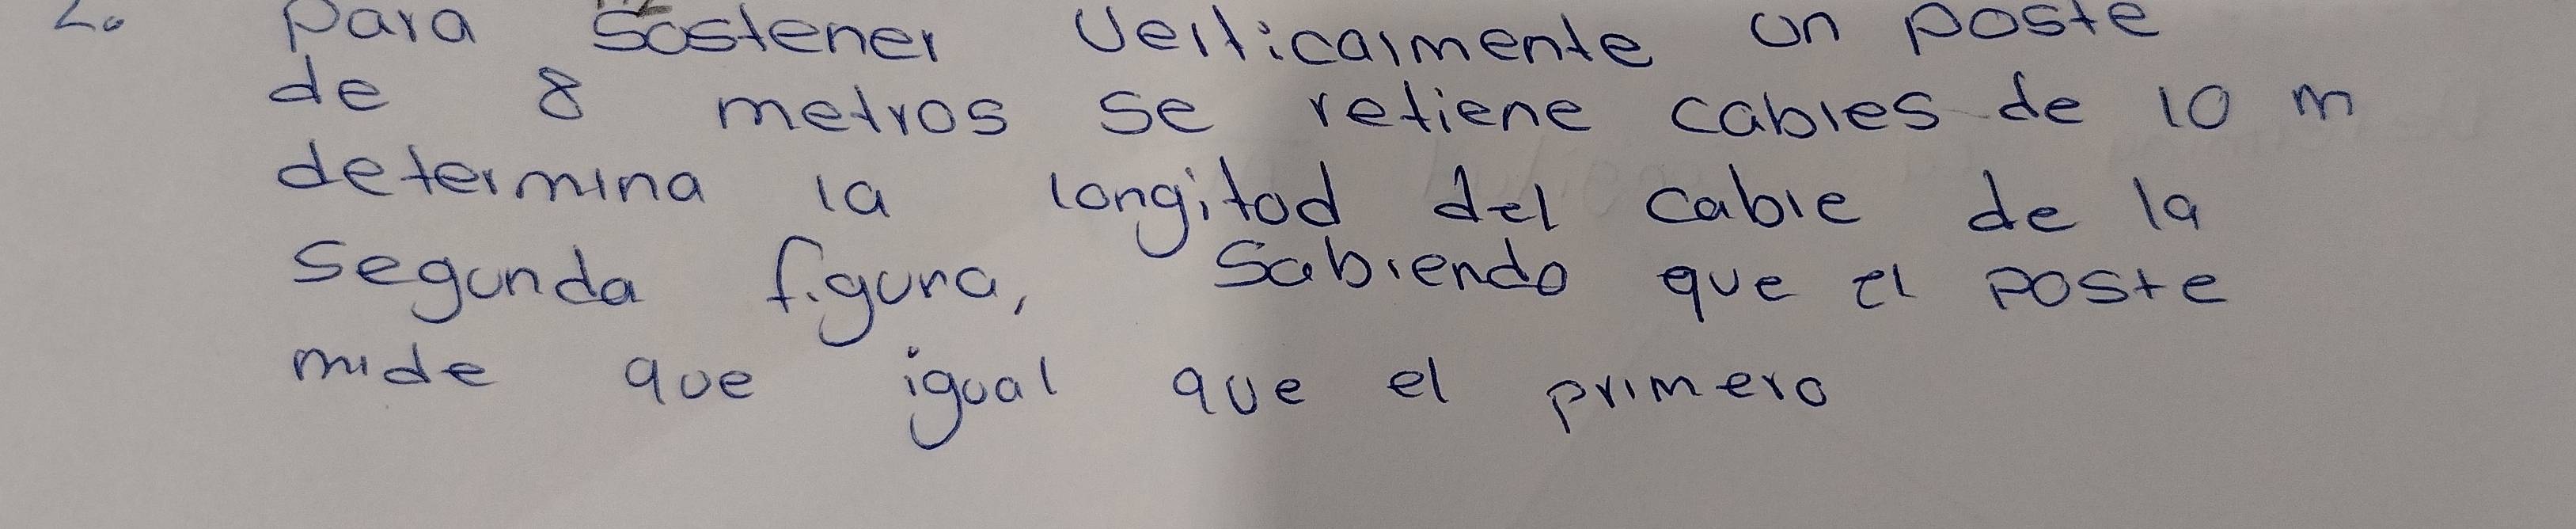 2. Para sostener verticalmente un poste
de 8 metros se retiene cables de 10 m
determina la longitud del cable de la
segunda figura, sabiendo que el poste
mide que igual que el primero